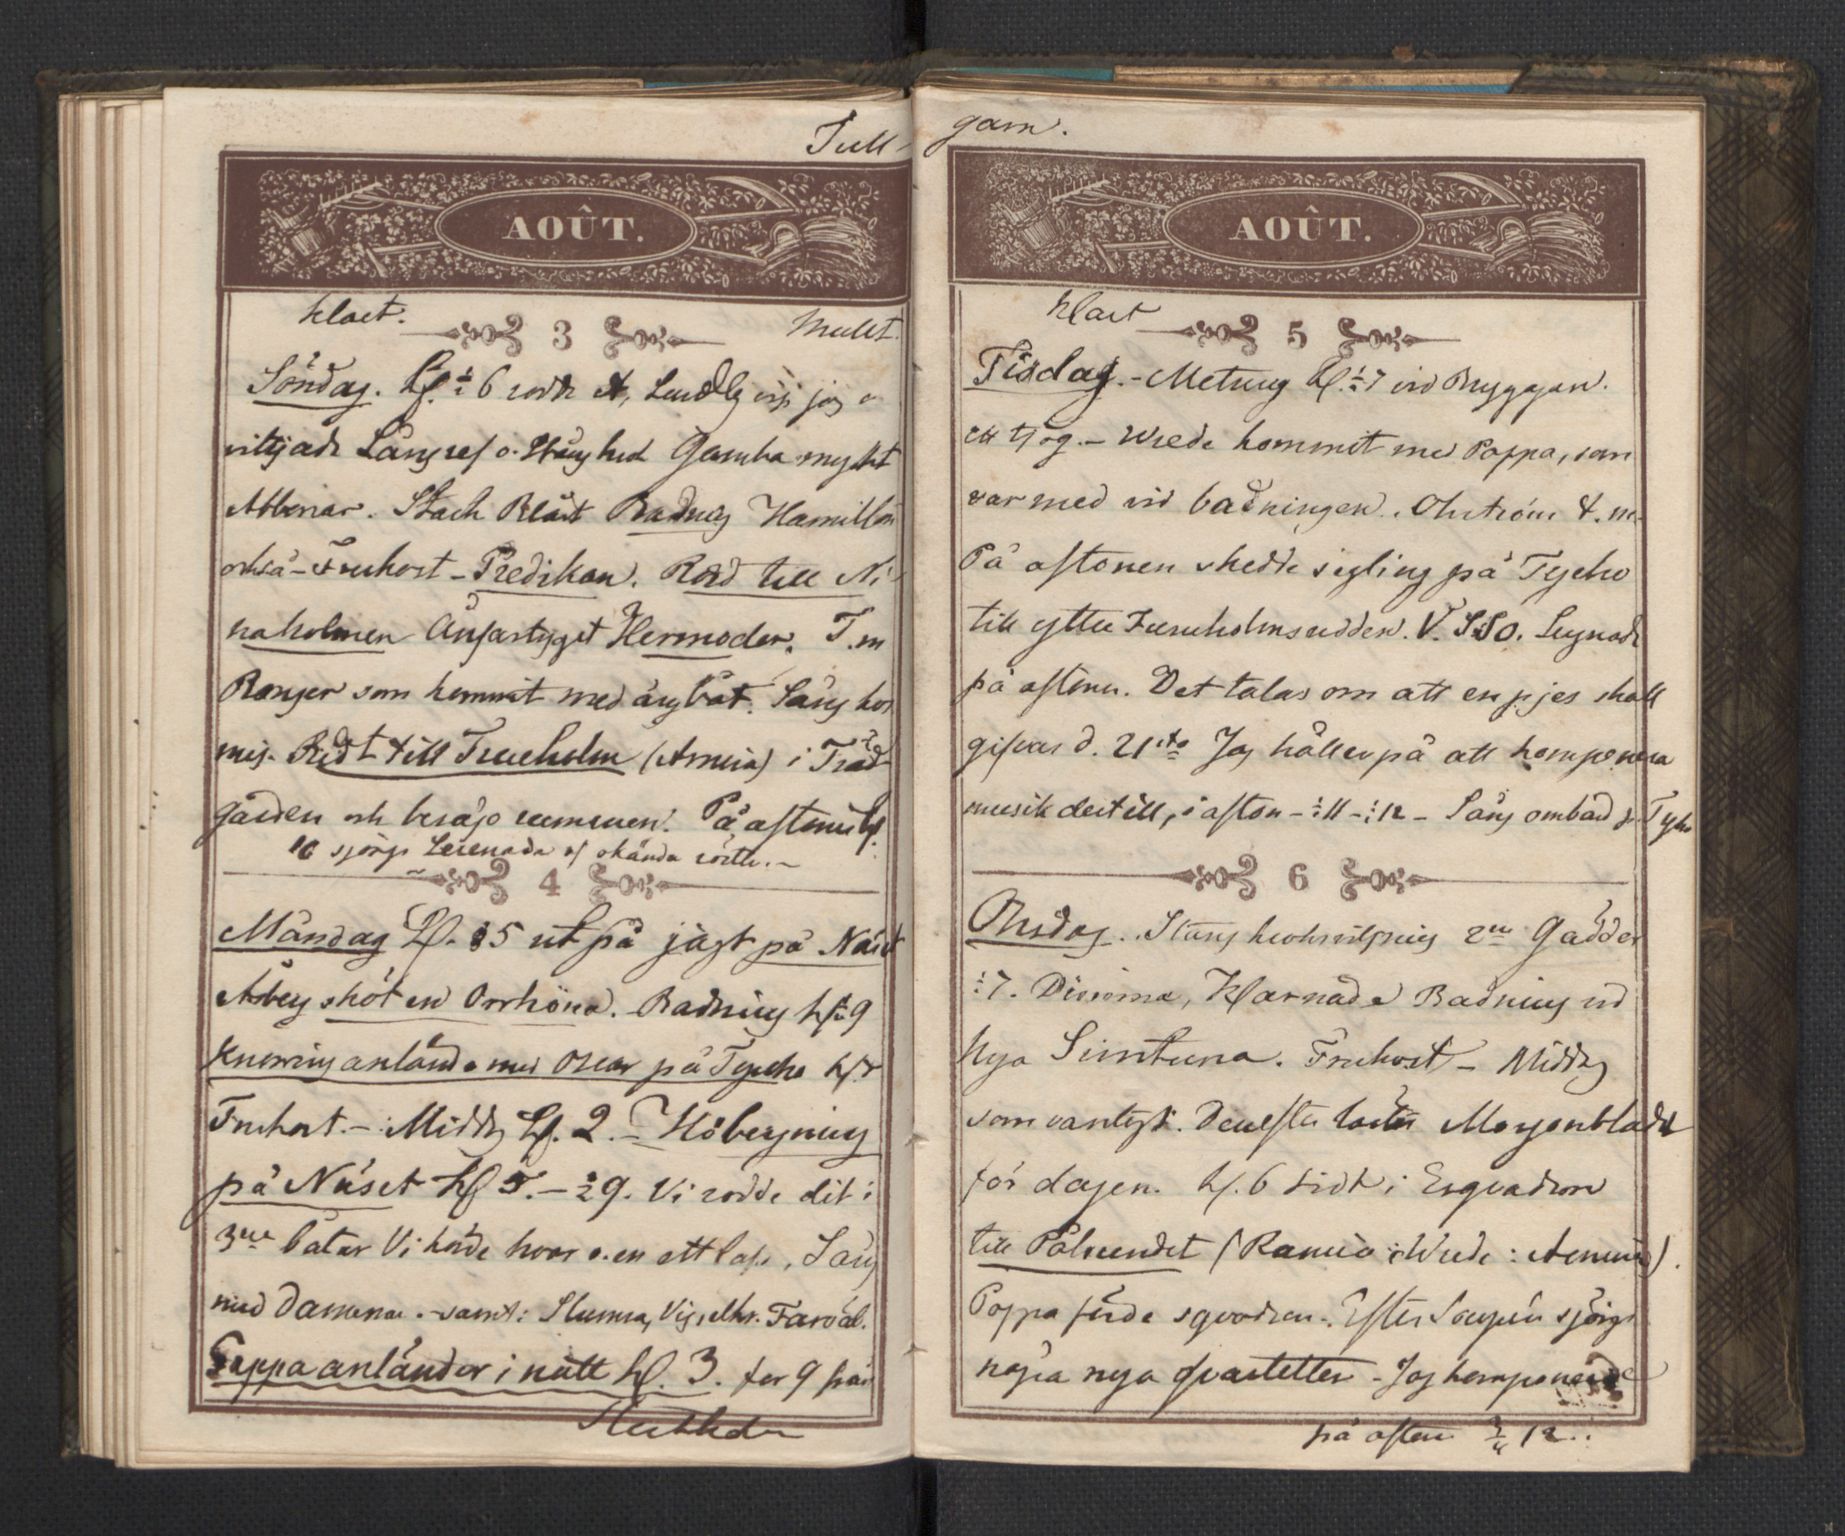 Tull-
AOÛT.
klart. 3 Mulet.
Söndag. Kl. ½ 6 rodde A, Lundbg jag o
vittjade Långref o. Gamla mycket
Abborrar. Stark Blåst Badning Hamilton
också - Frukost - Predikan. Rodd till Ni-
naholmen Ångfartyget Hermoder. T.m
som kommit med ångbåt. Sång hos
mig. Ridt till Tureholm (Armida) i Träd-
gården och besågo rummen. På aftonen kl.
10 sjöngs Serenada af okända röster. -
4
Måndag Kl. 5 ut på jagt på Näset
Åberg sköt en Orrhöna. Badning kl. 9
Knorring anlände med Oscar på Tycho kl.
Frukost. - Middg kl. 2. - Höbergning
på Näset Kl 5. - ½9. Vi rodde dit i
3ne båtar Vi körde hvar o. en ett lass, Sång
med Damerna. - samt: Slumra, Farväl.
Pappa anländer i natt kl. 3. for 9 från
Stockholm
garn.
AOÛT.
klart 5
Tisdag. - Metning Kl. ½ 7 vid Bryggan.
ett tjog. - Wrede kommit med Pappa, som
var med vid badningen. Ohström t. m.
På aftonen skedde segling på Tycho
till yttre Tureholmsudden. V. SSO. Lugnade
på aftonen. Det talas om att en pjes skall
gifvas d. 21sta Jag håller på att komponera
musik dertill, i afton - ½11 - ½12 - Sång ombord på Tycho
6
Onsdag. Stångkroksvittjning 2ne Gäddor
½7. Klarnade Badning vid
Nya Simtuna. Frukost - Middg
som vanligt. Derefter lästes Morgonbladet
för dagen. kl. 6 ridt i Esquadron
till Pålsundet (Ramiro: Wrede: Armida).
Pappa förde sqvadron. - Efter Soupén sjöngs
några nya qvartetter - Jag komponerade
på aftonen ¾ 12.